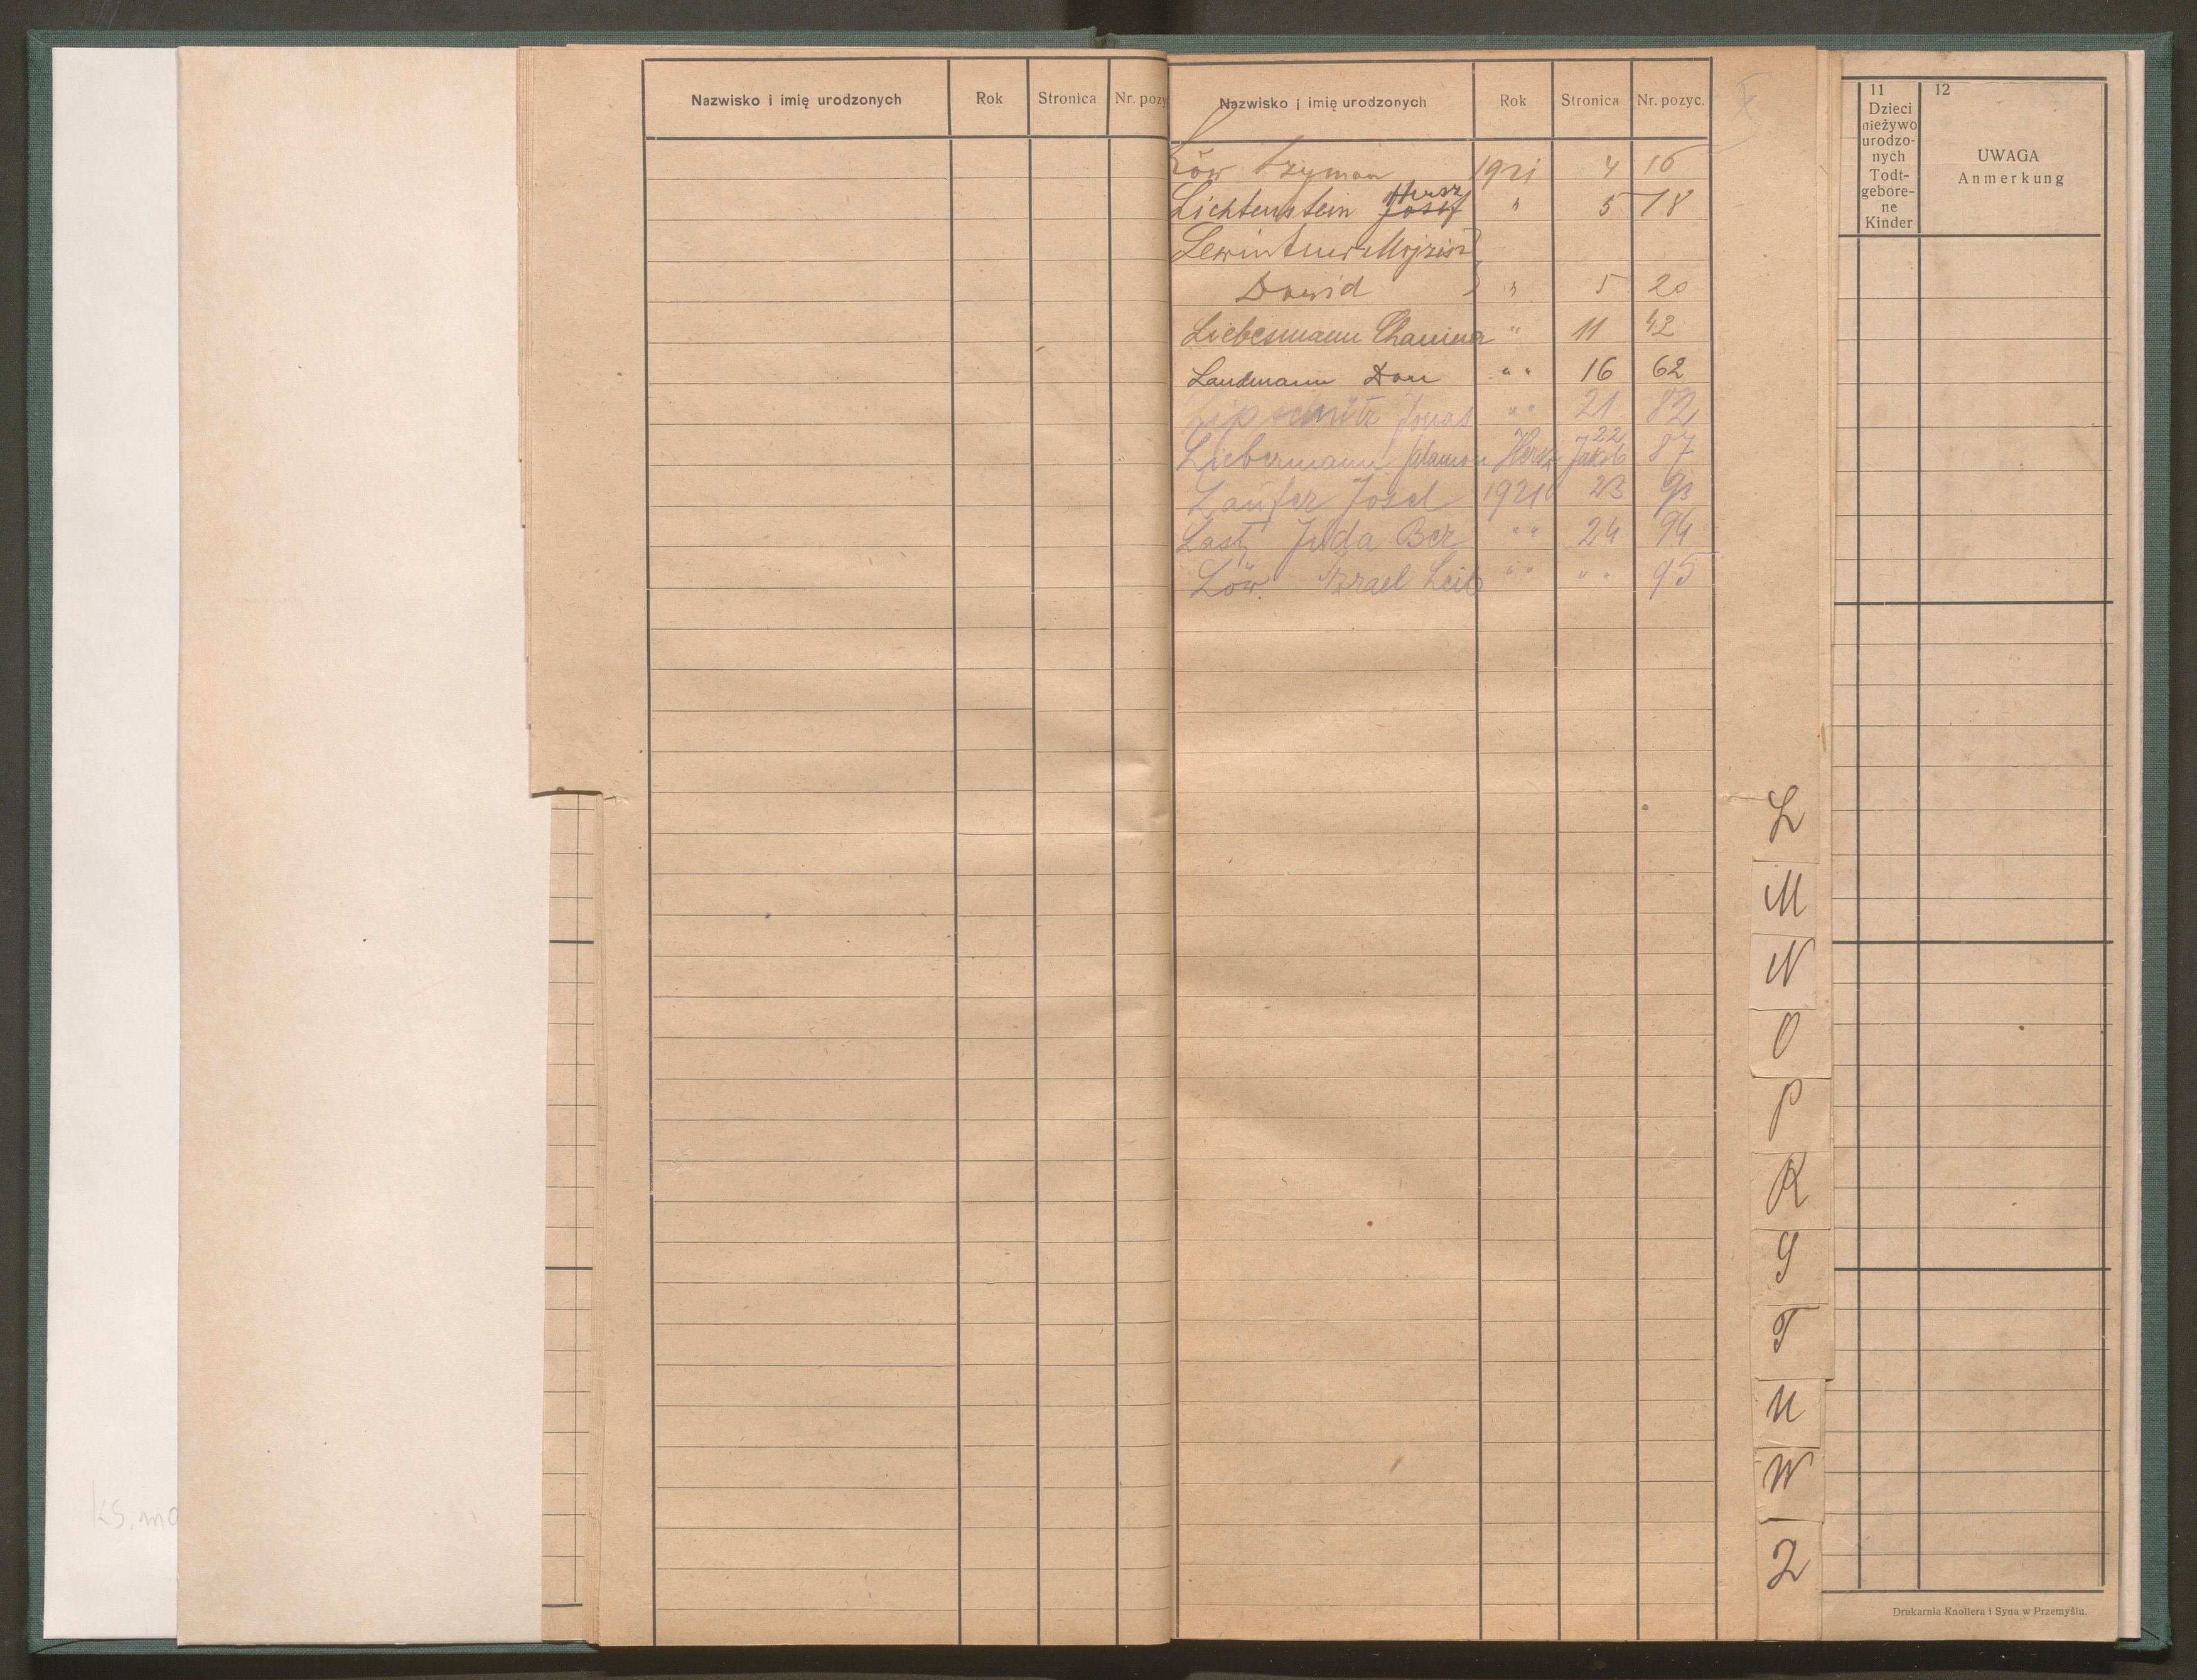 Nazwisko i imię urodzonych Rok Stronica Nr. pozy
Nazwisko i imię urodzonych Rok Stronica Nr. pozyc.
Löw Szymon 1921 4 16
Hersz
Lichtenstein Josef " 5 18
Lewinter Mojzisz }
Dawid } " 5 20
Liebesmann Chanina " 11 42
Landmann Don " " 16 62
Lipschütz Jonas " " 21 82
Liebermann Salamon Hersz Jakób 22 87
Laufer Josel 1921 23 93
Last Juda Ber " " 24 94
Löw Izrael Leib " " " " 95
L
M
N
O
P
R
S
T
U
W
Z
11
Dzieci
nieżywo
urodzo-
nych
Todt-
gebore-
ne
Kinder
12
UWAGA
Anmerkung
Drukarnia Knollera i Syna w Przemyślu.
ks. mo